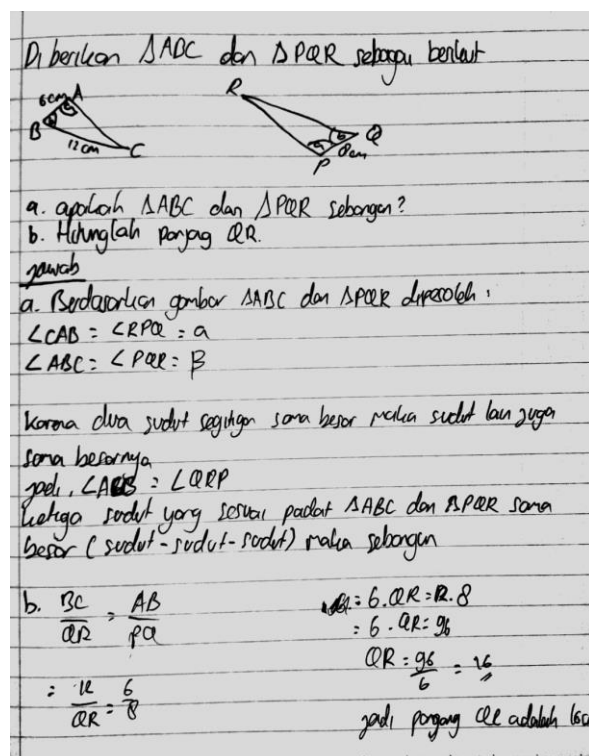 Diberikan ΔABC dan ΔPQR sebagai berikut
6cm A
B
12 cm C
R
Q
8cm
P
a. apakah ΔABC dan ΔPQR sebangun?
b. Hitunglah panjang QR.
jawab
a. Berdasarkan gambar ΔABC dan ΔPQR diperoleh :
∠CAB = ∠RPQ = α
∠ABC = ∠PQR = β
Karena dua sudut segitiga sama besar maka sudut lain juga
sama besarnya
jadi, ∠ACB = ∠QRP
ketiga sudut yang sesuai padat ΔABC dan ΔPQR sama
besar (sudut-sudut-sudut) maka sebangun
b. BC/QR = AB/PQ
= 12/QR = 6/8
= 6.QR = 12.8
= 6.QR = 96
QR = 96/6 = 16
jadi panjang QR adalah 16c